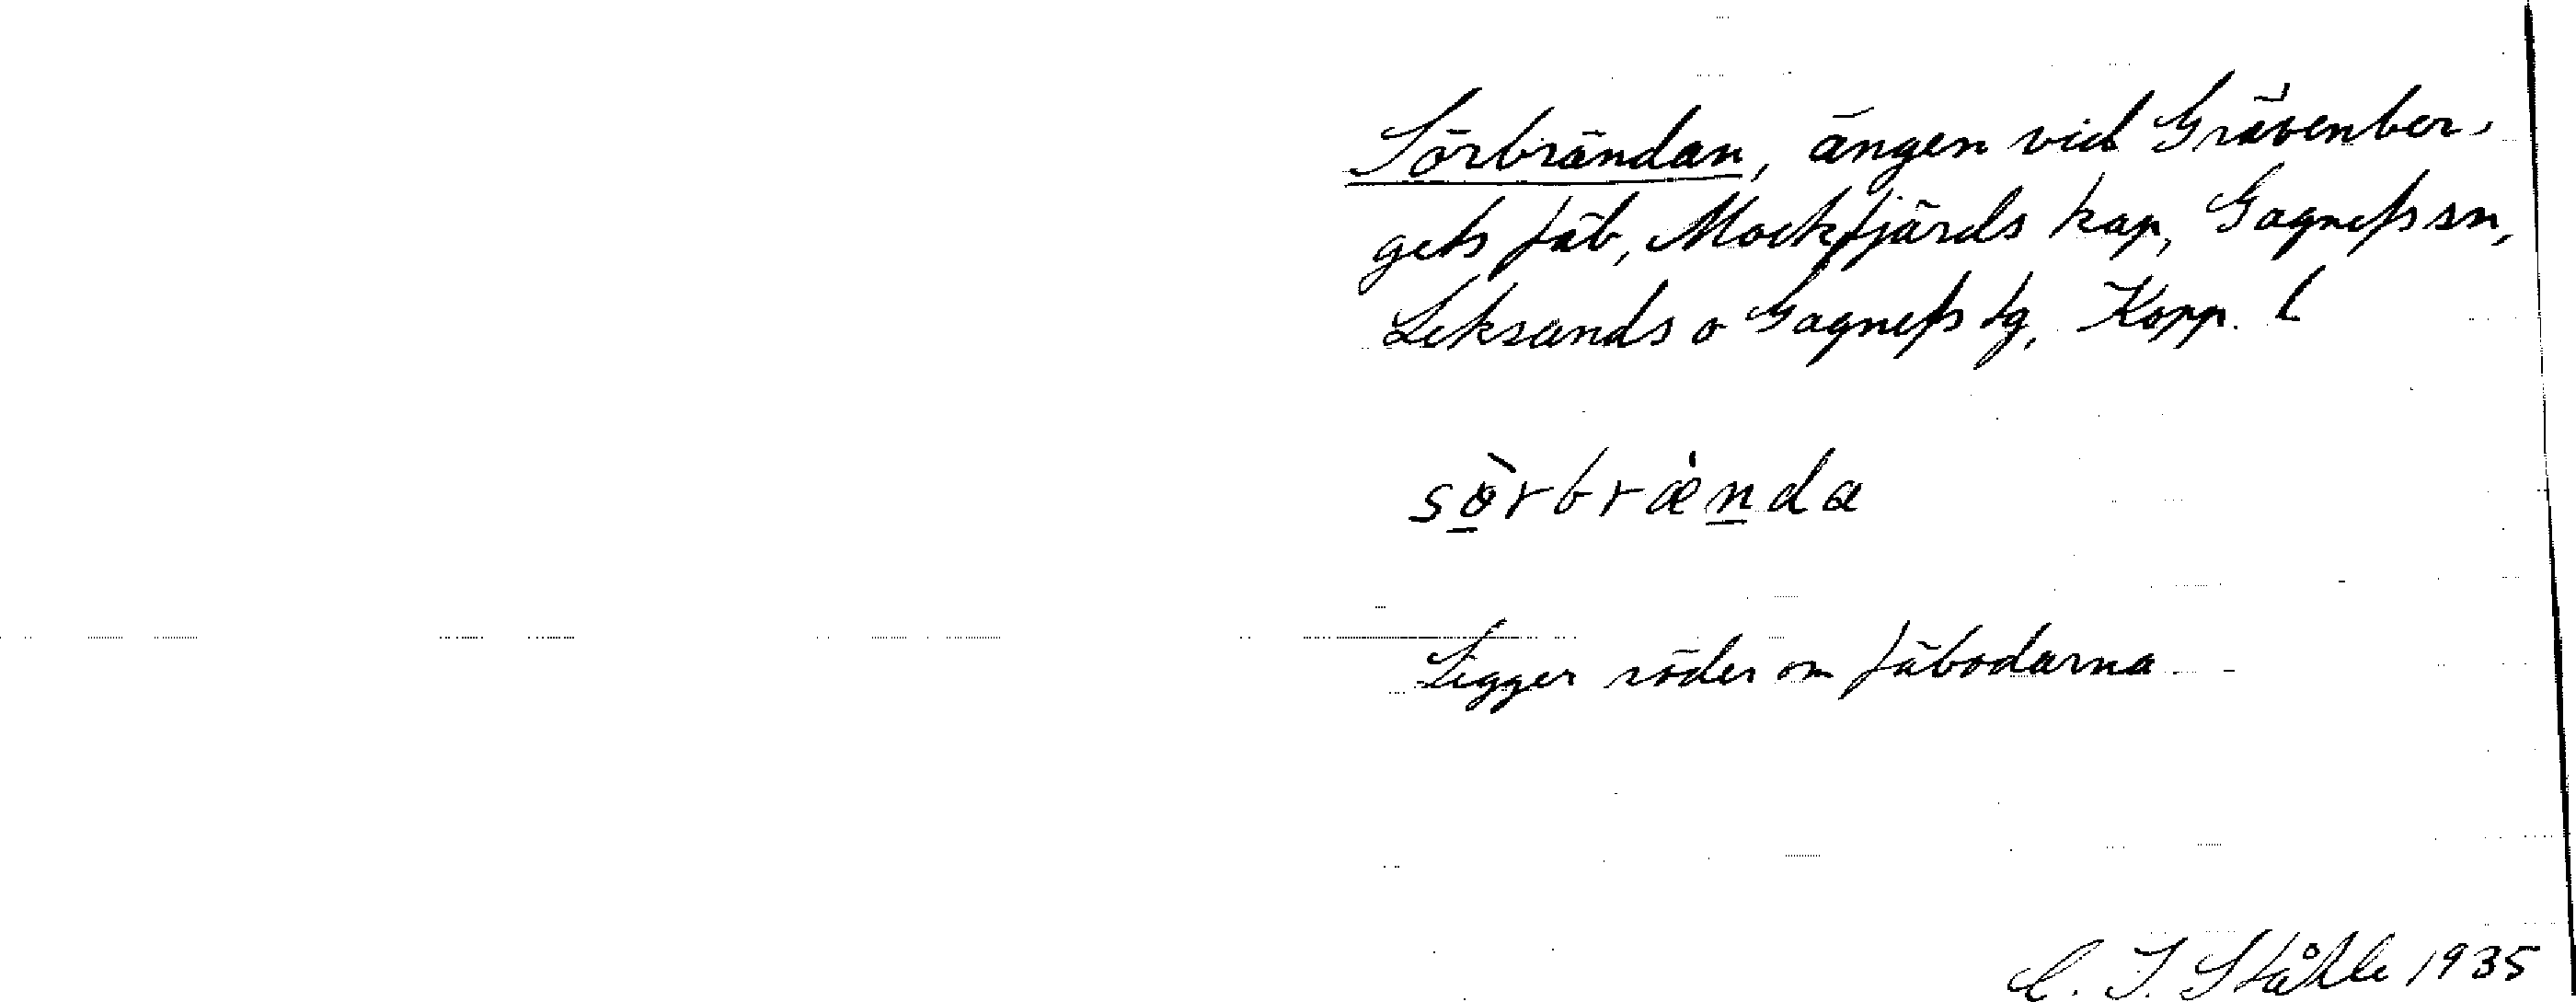 Sörbrändan, ängen vid Grävenber-
gets fäb, Mockfjärds kap, Gagnefs sn,
Leksands o Gagnefs tg, Kopp. l
sørbrænda
Ligger söder om fäbodarna
C. I. Ståhle 1935